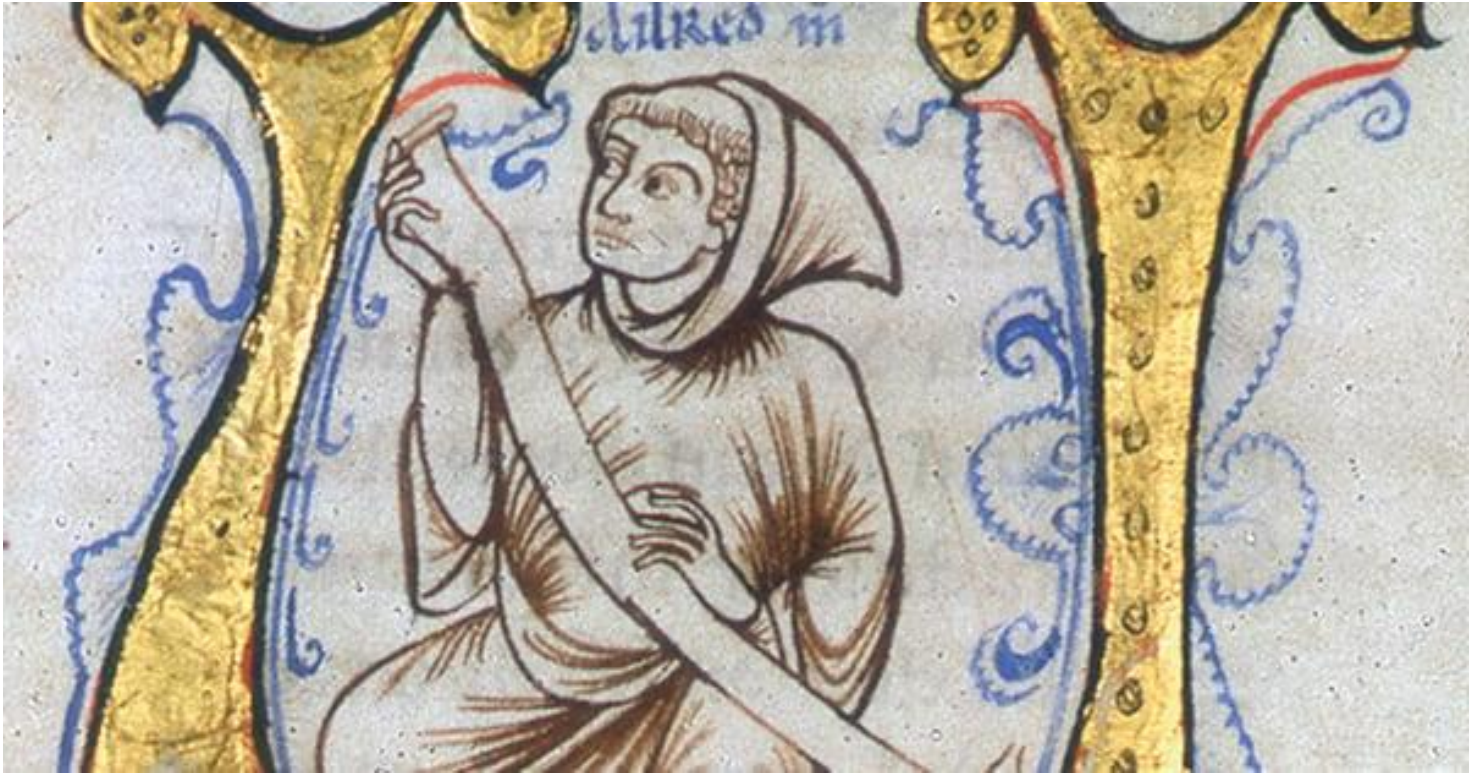 ailred m̄